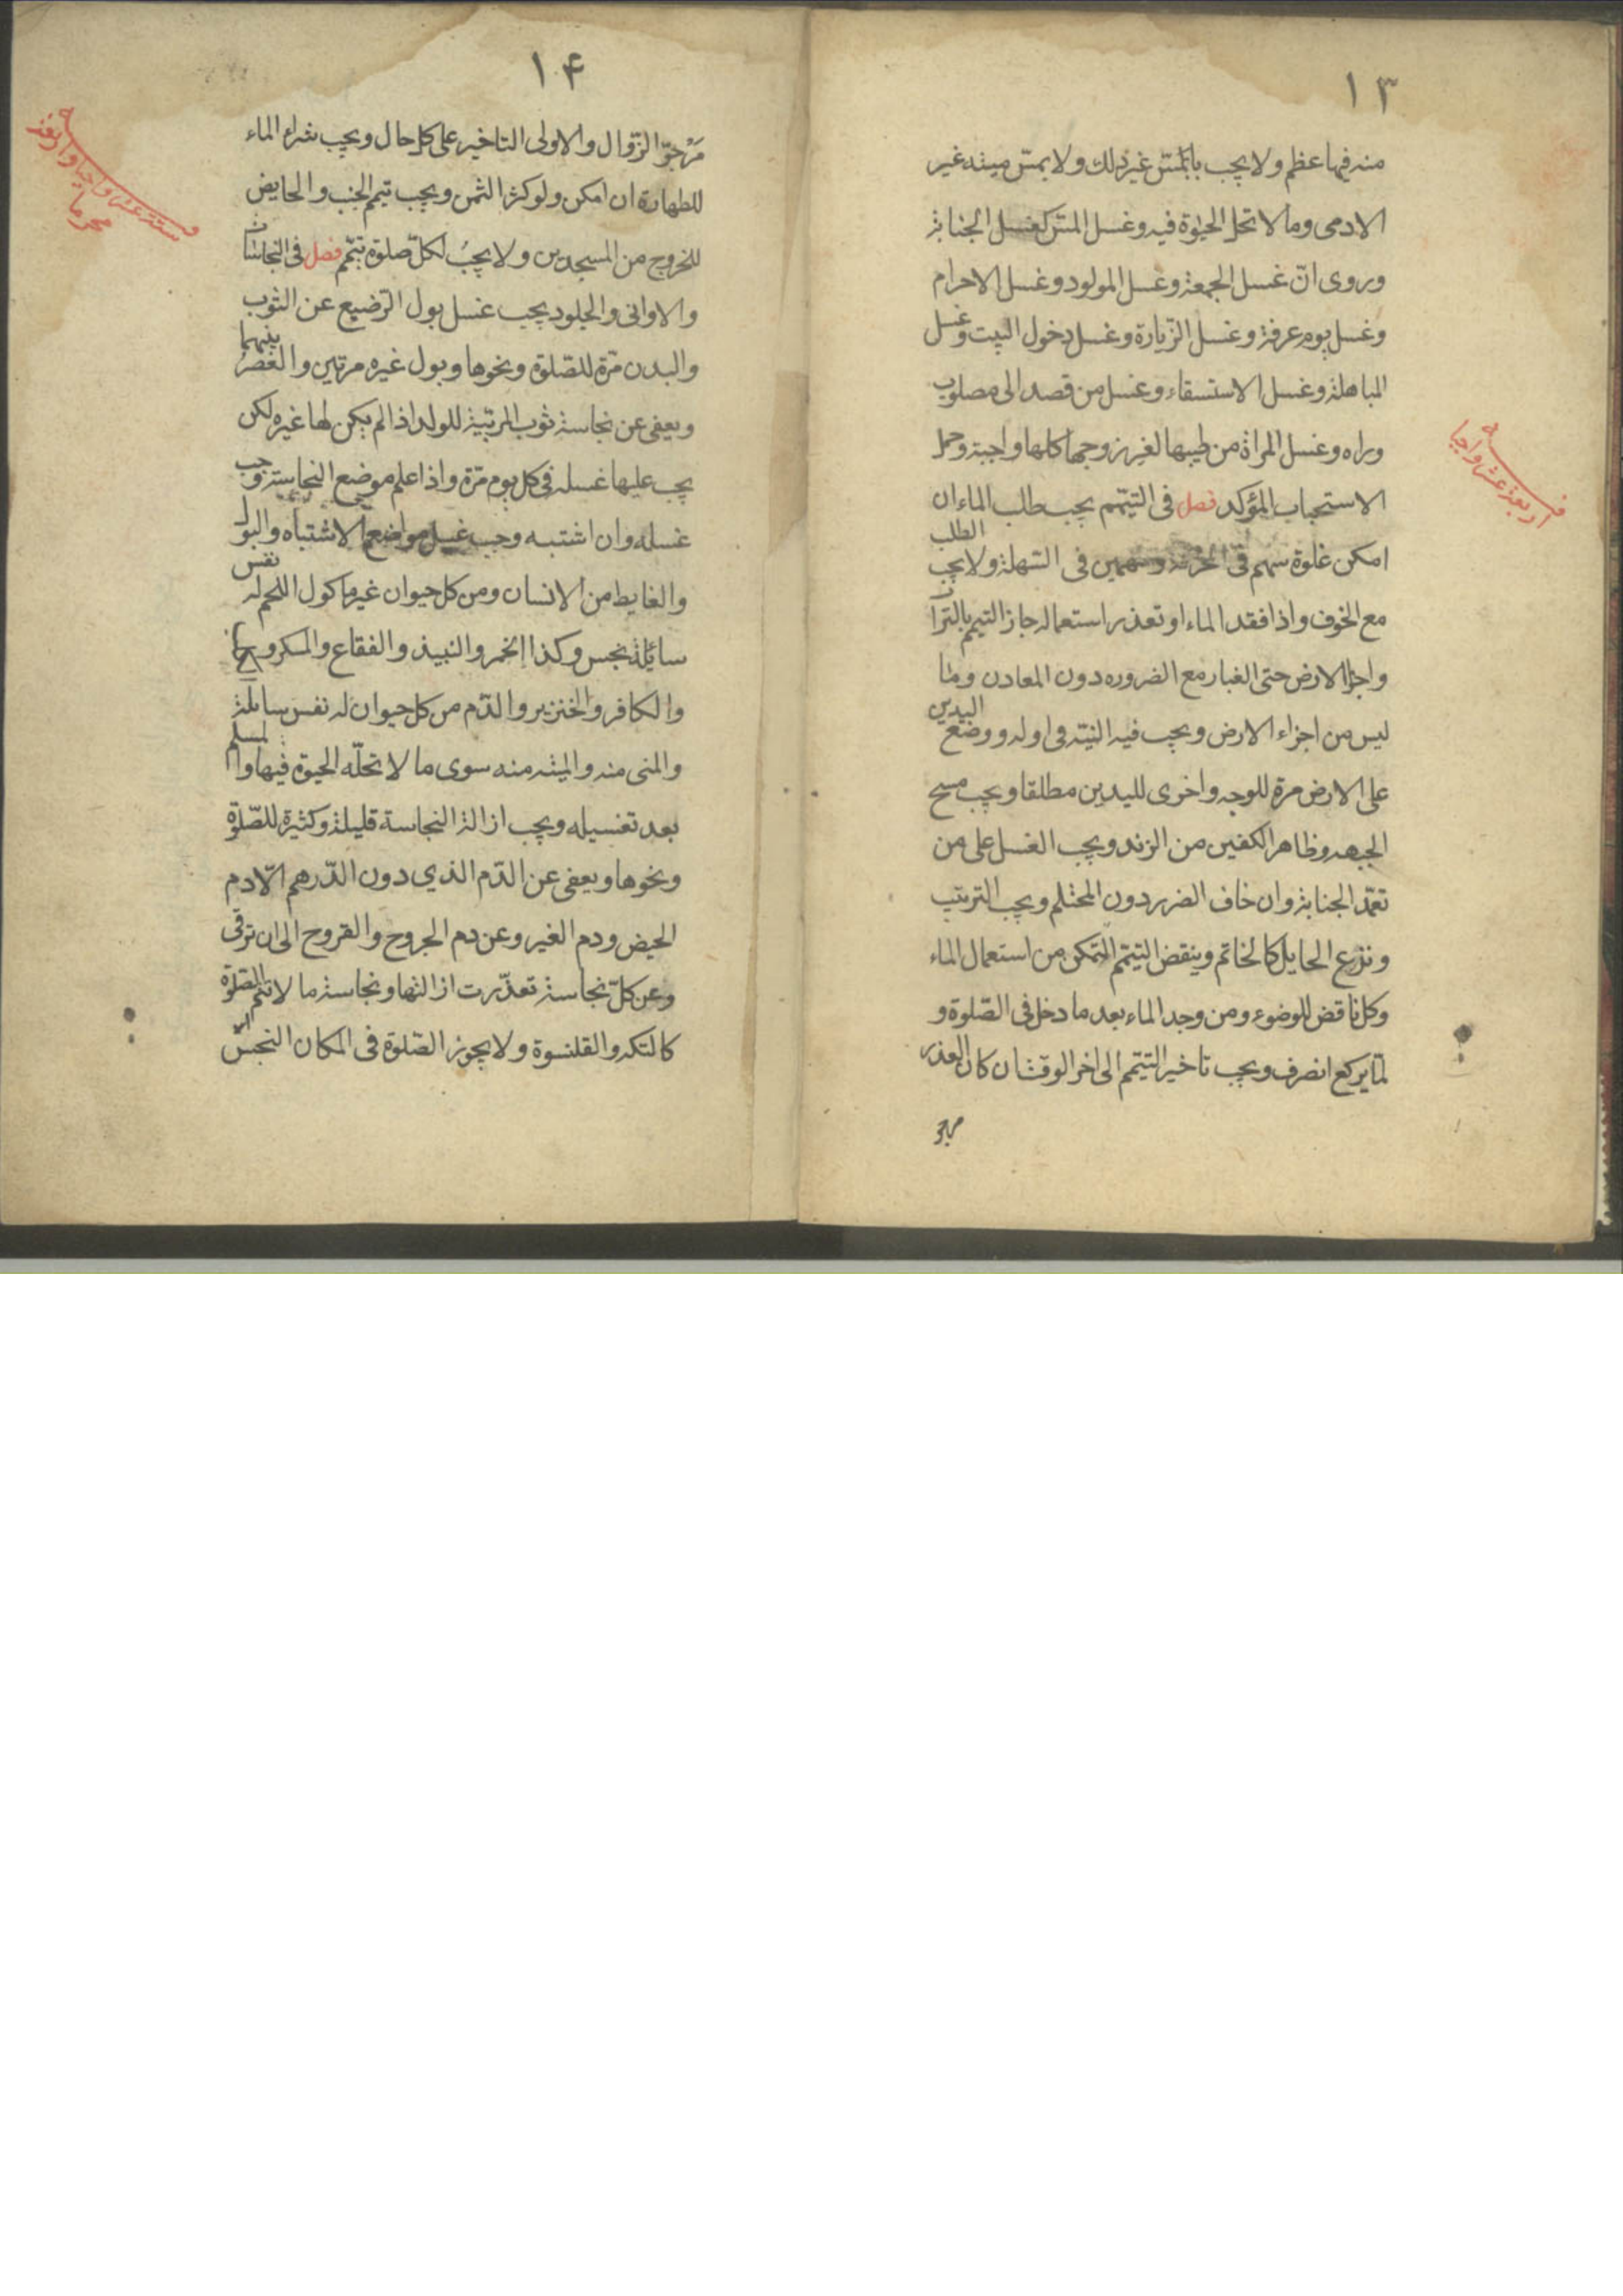 ١٣
منه فيها عظم ولا يجب بالمس غير ذلك ولا يمس ميتة غير
الادمى وما لا تحل الحيوة فيه وغسل المس كغسل الجنابة
وروى انّ غسل الجمعة وغسل المولود وغسل الاحرام
وغسل يوم عرفة وغسل الزّيارة وغسل دخول البيت وغسل
المباهلة وغسل الاستسقاء وغسل من قصد الى مصلوب
وراه وغسل المراة من طيبها لغير زوجها كلها واجبة وحمل
الاستحباب المؤكد فصل فى التيمّم يجب طلب الماء ان
امكن غلوة سهم فى الحزنة وسهمين فى السّهلة ولا يجب الطلب
مع الخوف واذا فقد الماء او تعذر استعماله جاز التيمم بالتراب
واجزا الارض حتى الغبار مع الضروره دون المعادن وما
ليس من اجزاء الارض ويجب فيه النيّة فى اوله ووضع اليدين
على الارض مرة للوجه واخرى لليدين مطلقا ويجب مسح
الجبهه وظاهر الكفين من الزند ويجب الغسل على من
تعمّد الجنابة وان خاف الضرر دون المحتلم ويجب الترتيب
ونزع الحايل كالخاتم وينقض التيمّم التمكن من استعمال الماء
وكل ناقض للوضوء ومن وجد الماء بعد ما دخل فى الصّلوة و
لمّا يركع انصرف ويجب تاخير التيمّم الى اخر الوقت ان كان العذر
مرجو
اربعة عشر واجبا
١۴
مَرْجوّ الزّوال والاولى التاخير على كل حال ويجب شراء الماء
للطهارة ان امكن ولو كثر الثمن ويجب تيمم الجنب والحايض
للخروج من المسجدين ولا يجبُ لكلّ صلوة تيمّم فصل فى النجاسات
والاوانى والجلود يجب غسل بول الرّضيع عن الثوب
والبدن مرّة للصّلوة ونحوها وبول غيره مرتين والعَصْر بينهما
ويعفى عن نجاسة ثوب المربّية للولد اذا لم يكن لها غيره لكن
يجب عليها غسله فى كل يوم مرّة واذا علم موضع النجاسة وجب
غسله وان اشتبه وجب غسل مواضع الاشتباه والبول
والغايط من الانسان ومن كل حيوان غير ماكول اللحم له نفس
سائلة نجس وكذا الخمر والنبيذ والفقاع والمسكر و
والكافر والخنزير والدّم من كل حيوان له نفس سايلة
والمنى منه والميتة منه سوى ما لا تحلّه الحيوة فيها والمسلم
بعد تغسيله ويجب ازالة النجاسة قليلة وكثيرة للصّلوة
ونحوها ويعفى عن الدّم الذي دون الدّرهم الّا دم
الحيض ودم الغير وعن دم الجروح والقروح الى ان ترقى
وعن كلّ نجاسة تعذّرت ازالتها ونجاسة ما لا تتم الصّلوة
كالتكه والقلنسوة ولا يجوز الصّلوة فى المكان النجس
ستة عشر واجبا واربعة
محرما